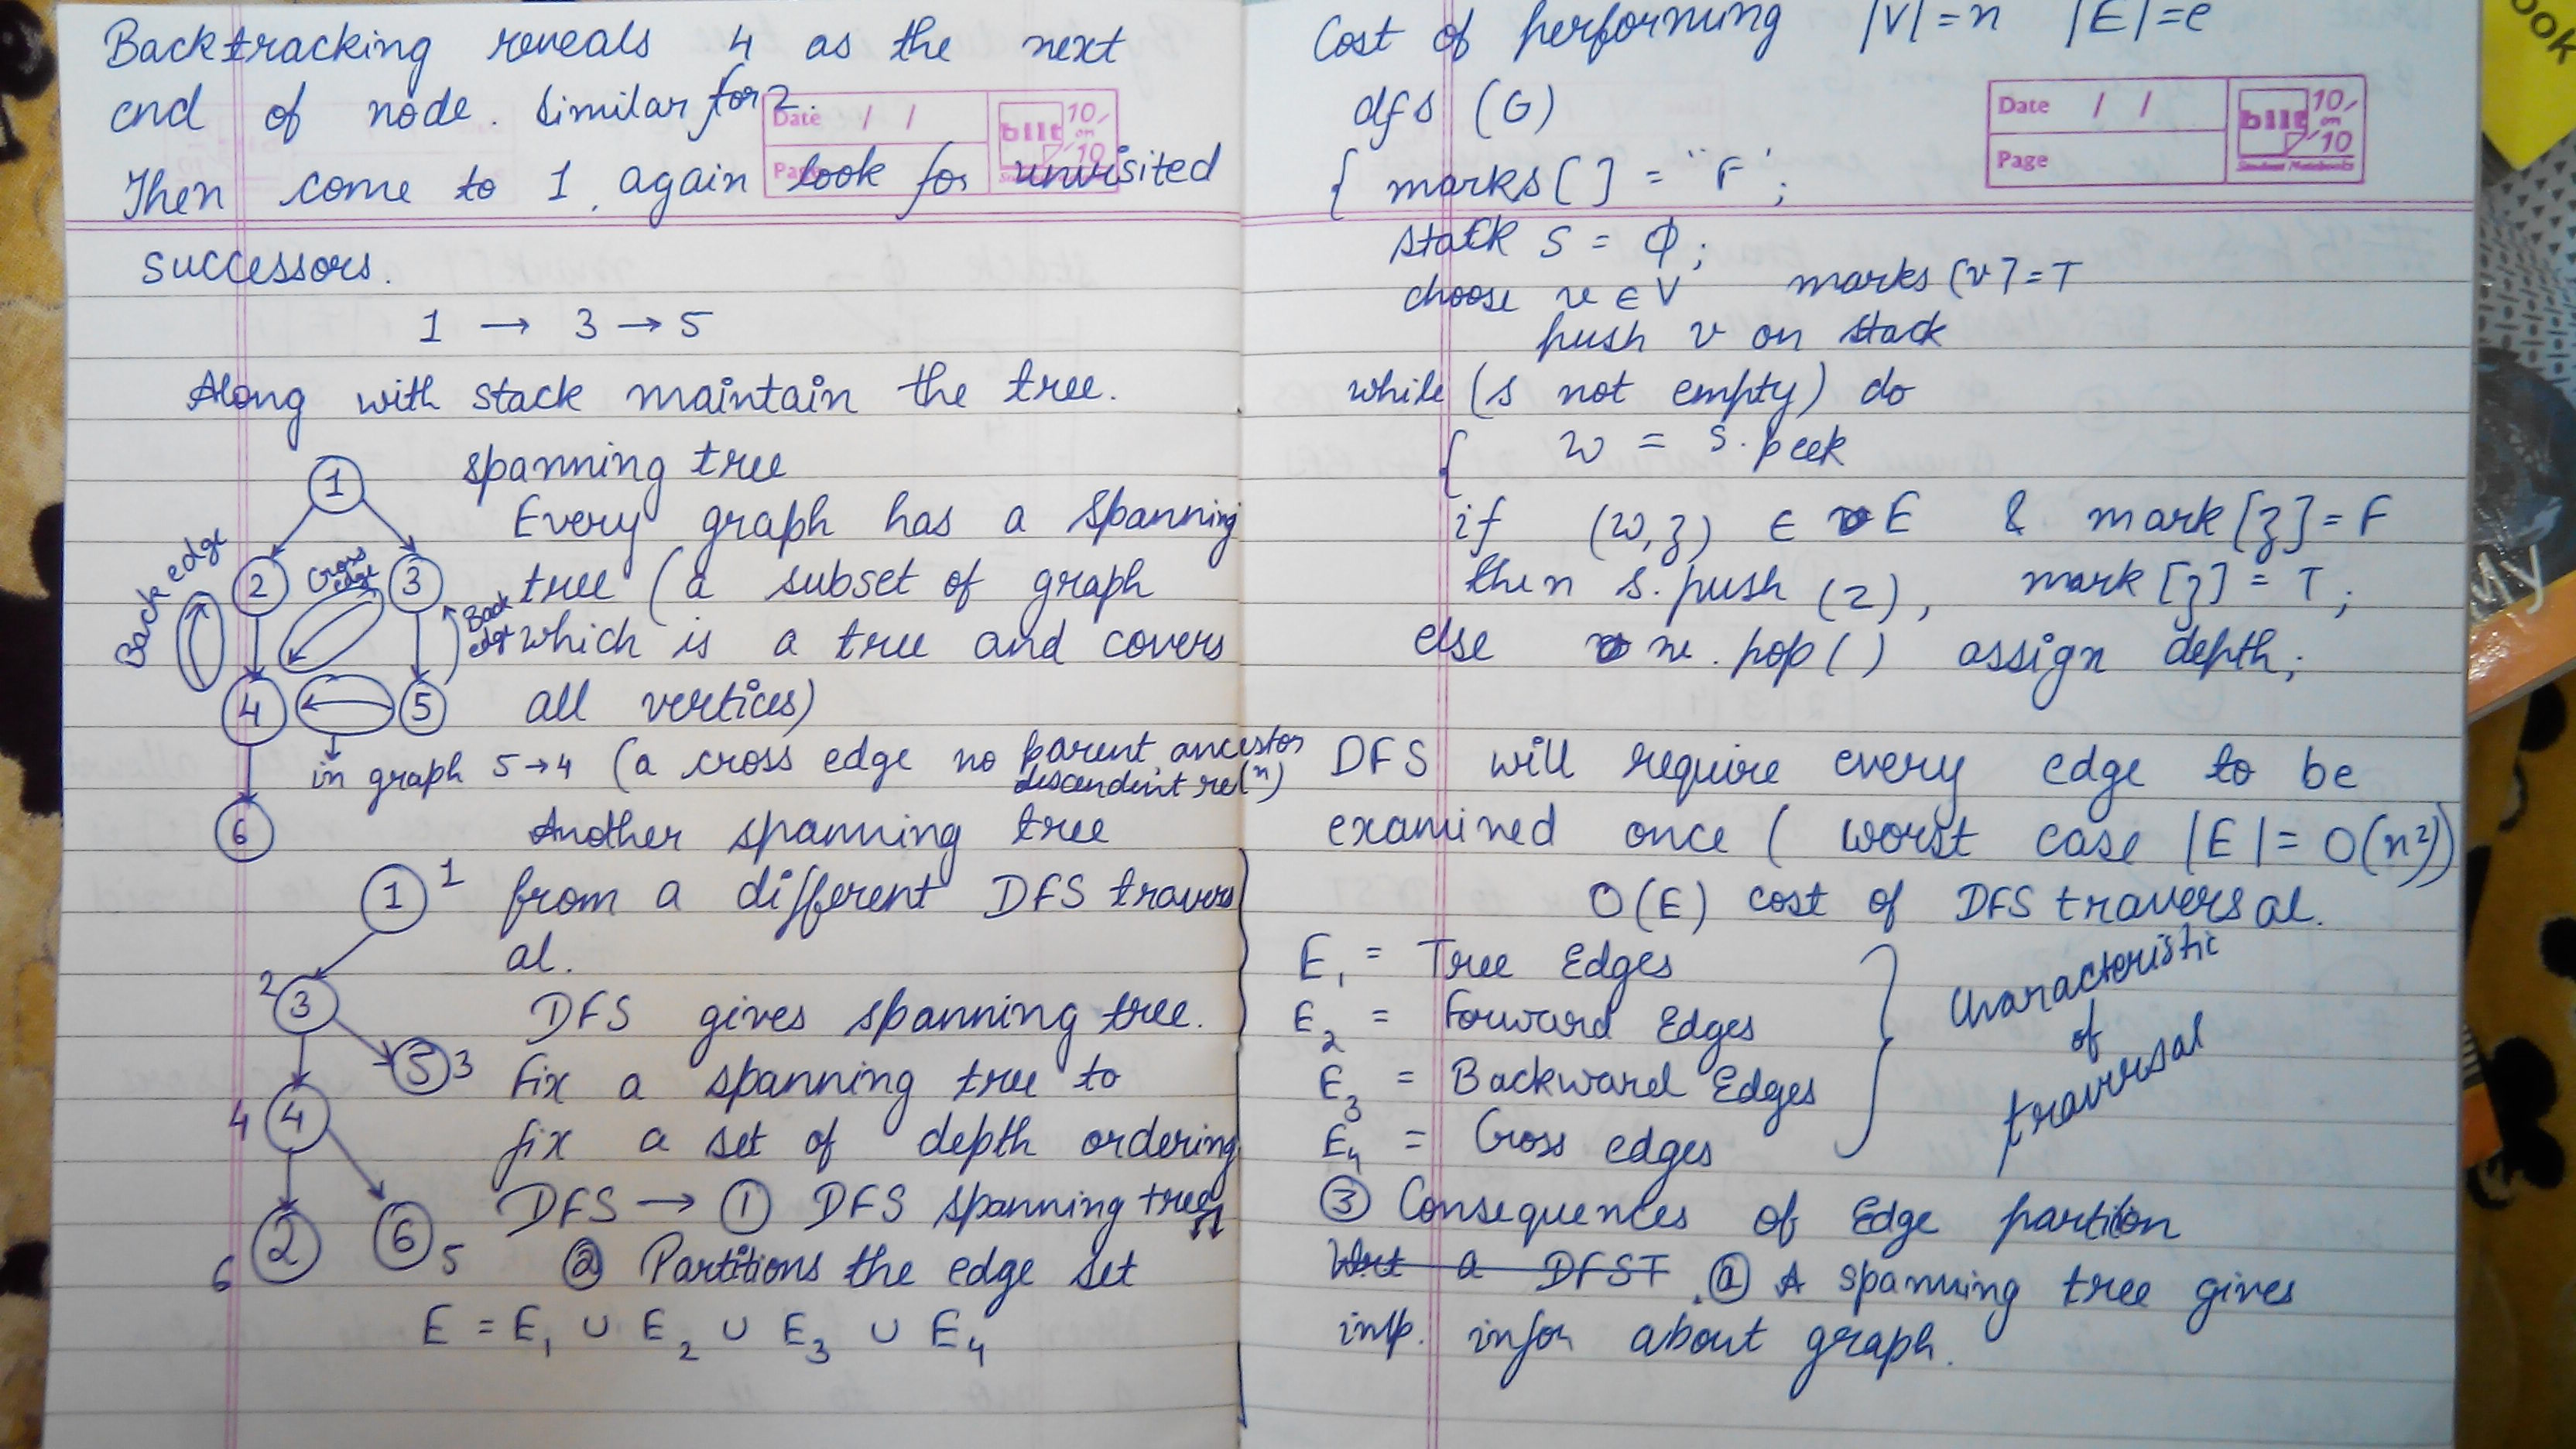 Backtracking reveals 4 as the next
end of node. Similar for 2.
Then come to 1, again look for unvisited
successors.
1 → 3 → 5
Along with stack maintain the tree.
spanning tree
Every graph has a spanning
tree (a subset of graph
which is a tree and covers
all vertices)
1
2
3
4
5
6
Back edge
Cross edge
Back edge
in graph 5→4 (a cross edge no parent, ancestor
descendent re(n)
Another spanning tree
from a different DFS travers
al.
DFS gives spanning tree.
Fix a spanning tree to
fix a set of depth ordering
1 1
2 3
5 3
4 4
2 6
6 5
DFS → ① DFS spanning trees
② Partitions the edge set
E = E1 ∪ E2 ∪ E3 ∪ E4
Date / /
Page
bilt 10/on/10
Student Notebooks
Cost of performing |V|=n |E|=e
dfs (G)
{ marks[] = "F";
stack S = Φ;
choose v ∈ V marks[v]=T
push v on stack
while (s not empty) do
{ w = s.peek
if (w,z) ∈ E & mark[z]=F
then s.push (z), mark[z] = T;
else .pop() assign depth;
DFS will require every edge to be
examined once ( worst case |E|= O(n²))
O(E) cost of DFS traversal.
E1 = Tree Edges
E2 = Forward Edges
E3 = Backward Edges
E4 = Cross edges
Characteristic
of
traversal
③ Consequences of Edge partition
a DFST ⓐ A spanning tree gives
imp. infor about graph.
Date / /
Page
bilt 10/on/10
Student Notebooks
ook
My